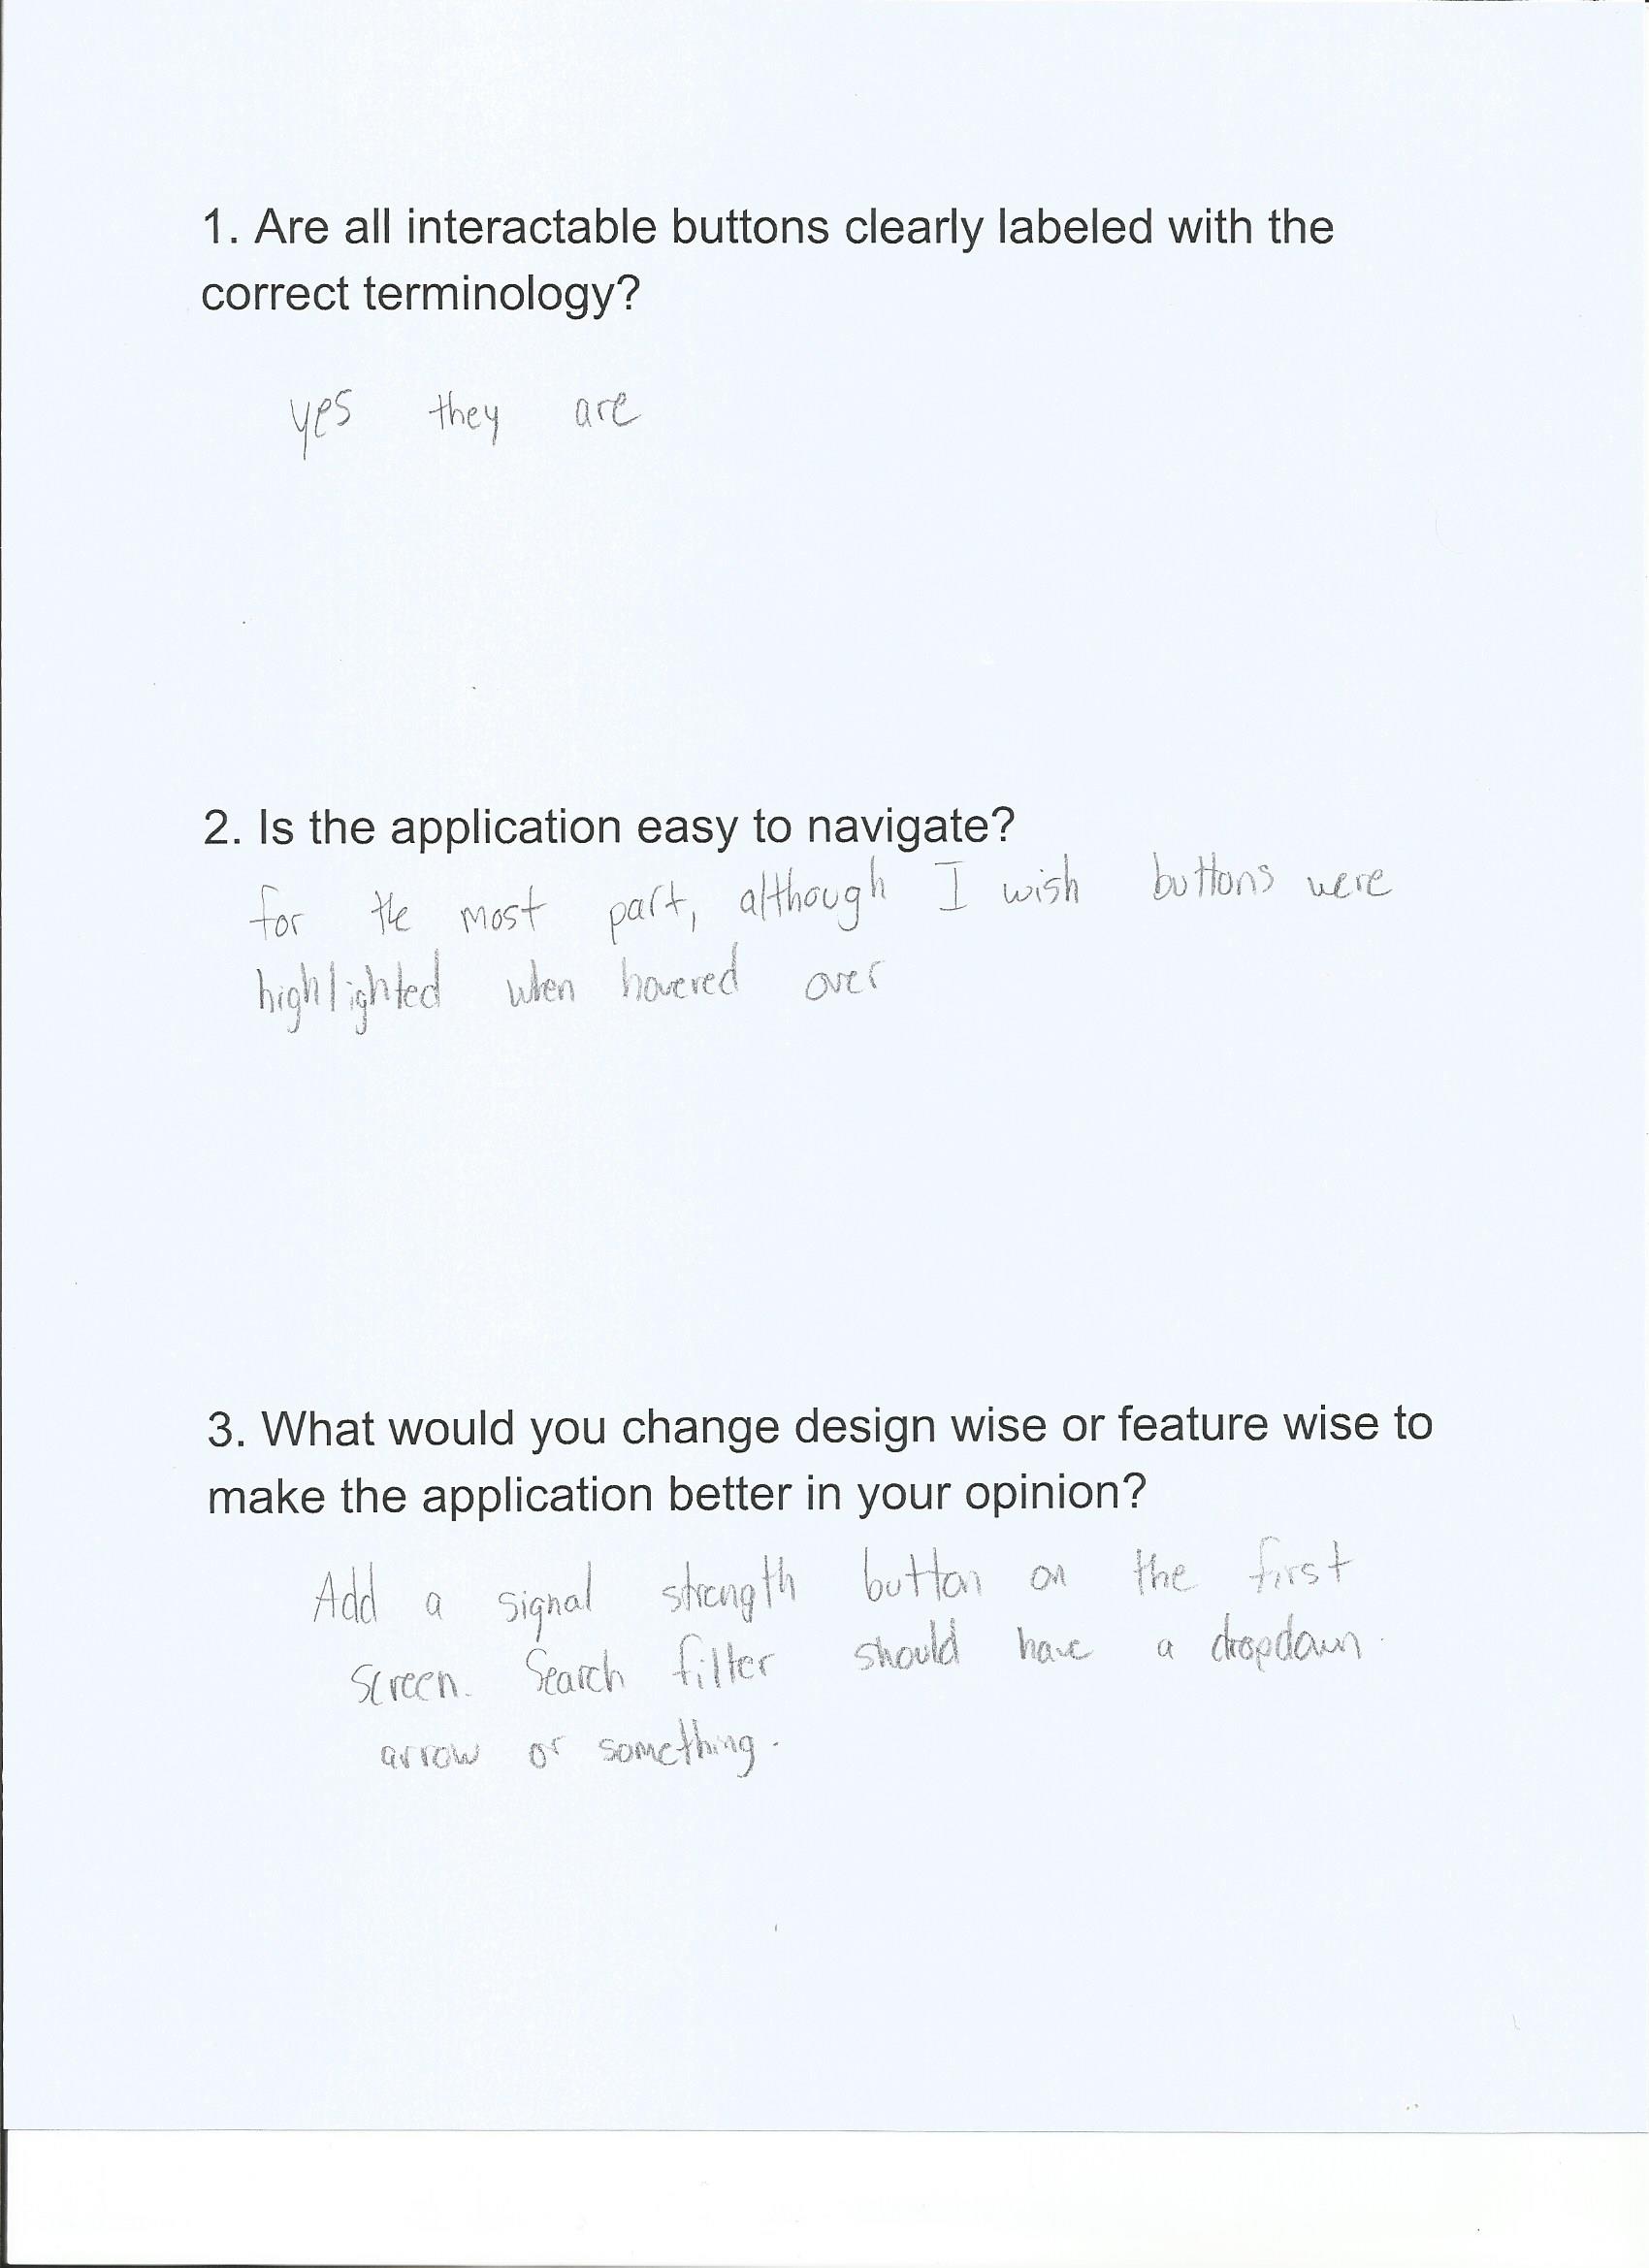 1. Are all interactable buttons clearly labeled with the
correct terminology?
yes they are
2. Is the application easy to navigate?
for the most part, although I wish buttons were
highlighted when hovered over
3. What would you change design wise or feature wise to
make the application better in your opinion?
Add a signal strength button on the first
screen. Search filter should have a dropdown
arrow or something.